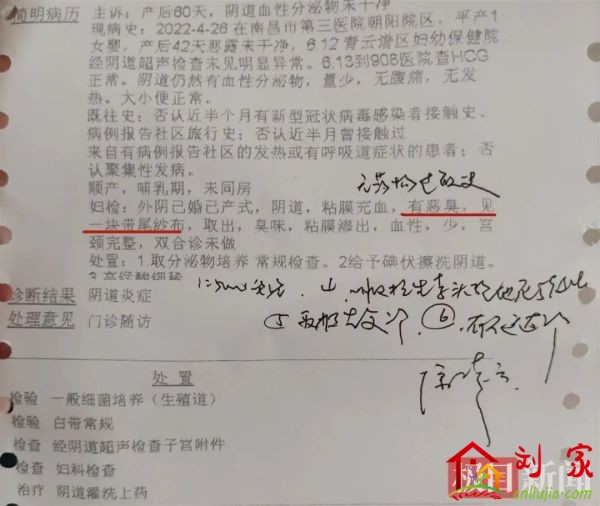 简明病历
主诉：产后60天，阴道血性分泌物未干净
现病史：2022-4-26在南昌市第三医院朝阳院区，平产1
女婴，产后42天恶露未干净，6.12 青云谱区妇幼保健院
经阴道超声检查未见明显异常。6.13到908医院查HCG
正常。阴道仍然有血性分泌物，量少，无腹痛，无发
热。大小便正常。
既往史：否认近半个月有新型冠状病毒感染者接触史、
病例报告社区旅行史；否认近半月曾接触过
来自有病例报告社区的发热或有呼吸道症状的患者；否
认聚集性发病。
无药物过敏史
顺产，哺乳期，未同房
妇检：外阴已婚已产式，阴道，粘膜充血，有恶臭，见
一块带尾纱布，取出，臭味，粘膜渗出，血性，少，宫
颈完整，双合诊未做
处置：1.取分泌物培养 常规检查。2给予碘伏擦洗阴道。
诊断结果 阴道炎症
处理意见 门诊随访
处 置
检验 一般细菌培养（生殖道）
检验 白带常规
检查 经阴道超声检查子宫附件
检查 妇科检查
治疗 阴道灌洗上药
新闻
刘家